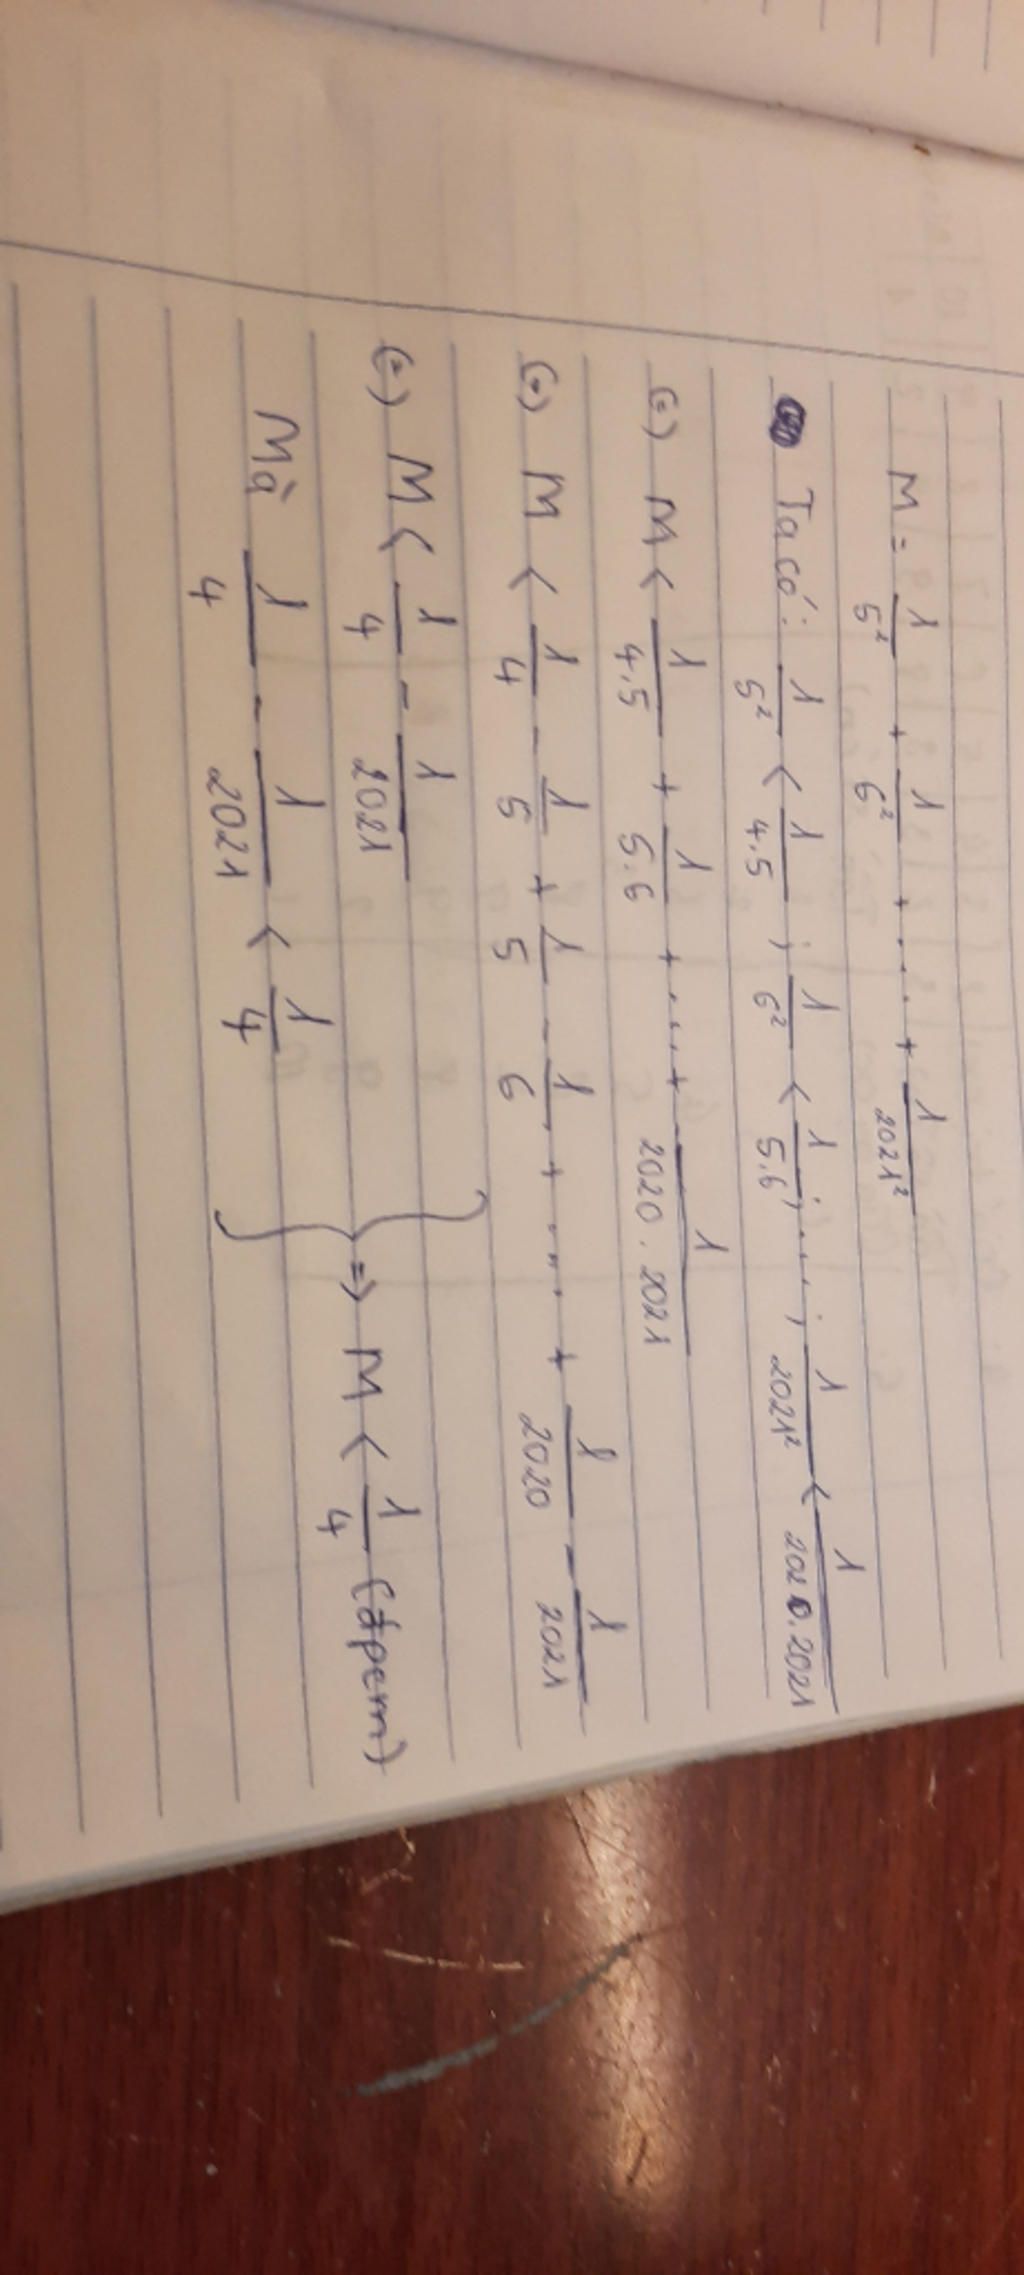 M = 1/5² + 1/6² + .... + 1/2021²
Ta có: 1/5² < 1/4.5 ; 1/6² < 1/5.6 ; ... ; 1/2021² < 1/2020.2021
(=) M < 1/4.5 + 1/5.6 + .... + 1/2020.2021
(=) M < 1/4 - 1/5 + 1/5 - 1/6 + .... + 1/2020 - 1/2021
(=) M < 1/4 - 1/2021
Mà 1/4 - 1/2021 < 1/4
=> M < 1/4 (đpcm)